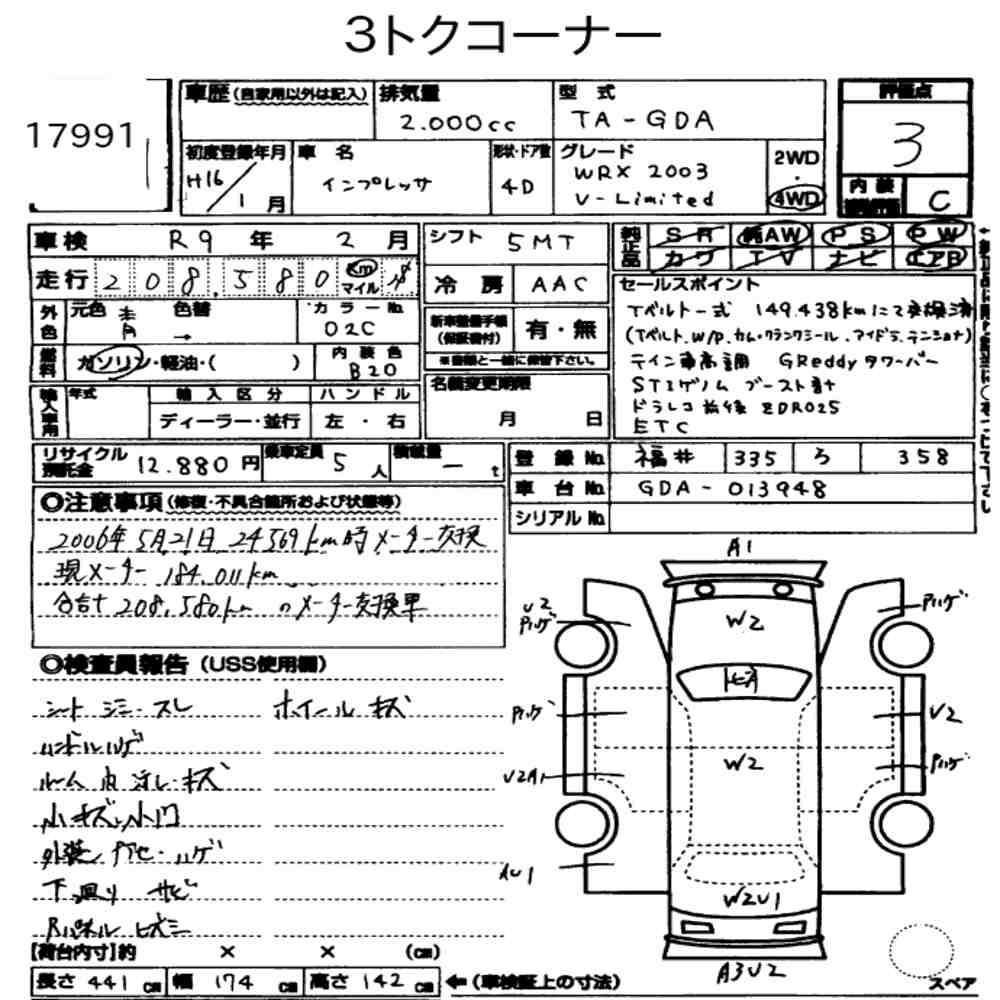 3トクコーナー
17991
車歴(自家用以外は記入) 排気量 2.000cc 型式 TA-GDA 評価点 3
初度登録年月 H16/1月 車名 インプレッサ 形状・ドア数 4D グレード WRX 2003 V-Limited 2WD・4WD 内装 C
車検 R9年 2月 シフト 5MT 純正品 SR AW PS PW
走行 208,580 Km マイル 冷房 AAC カワ TV ナビ エアB
外色 元色 青 色替 → カラーNo. 02C 新車整備手帳(保証書付) 有・無
※書類と一緒に保管下さい。
燃料 ガソリン・軽油・( ) 内装色 B20
セールスポイント
Tベルト一式 149.438kmにて交換済
(Tベルト.W/P.カム・クランクシール.アイドラ.テンショナ)
テイン車高調 GReddyタワーバー
STiゲノム ブースト計
ドラレコ前後 ZDR025
ETC
輸入車用 年式 輸入区分 ディーラー・並行 ハンドル 左・右
名義変更期限 月 日
リサイクル預託金 12.880円 乗車定員 5人 積載量 ー t
登録No. 福井 335 ろ 358
車台No. GDA-013948
シリアルNo.
◎注意事項(修復・不具合箇所および状態等)
2006年5月21日 24569km時メーター交換
現メーター 184.011km
合計208.580kmのメーター交換車
◎検査員報告(USS使用欄)
シート シミ・スレ ホイール キズ
ハンドルハゲ
ルーム内 汚レ・キズ
小キズ・小凹
外装 アセ・ハゲ
下廻り サビ
Rパネル ヒズミ
A1
U2 Pハゲ W2 Pハゲ
トビA
Pハゲ U2
U2A1 W2 Pハゲ
AU1 W2U1
A3U2
スペア
【荷台内寸】約 × × (cm)
長さ 441 cm 幅 174 cm 高さ 142 cm ←(車検証上の寸法)